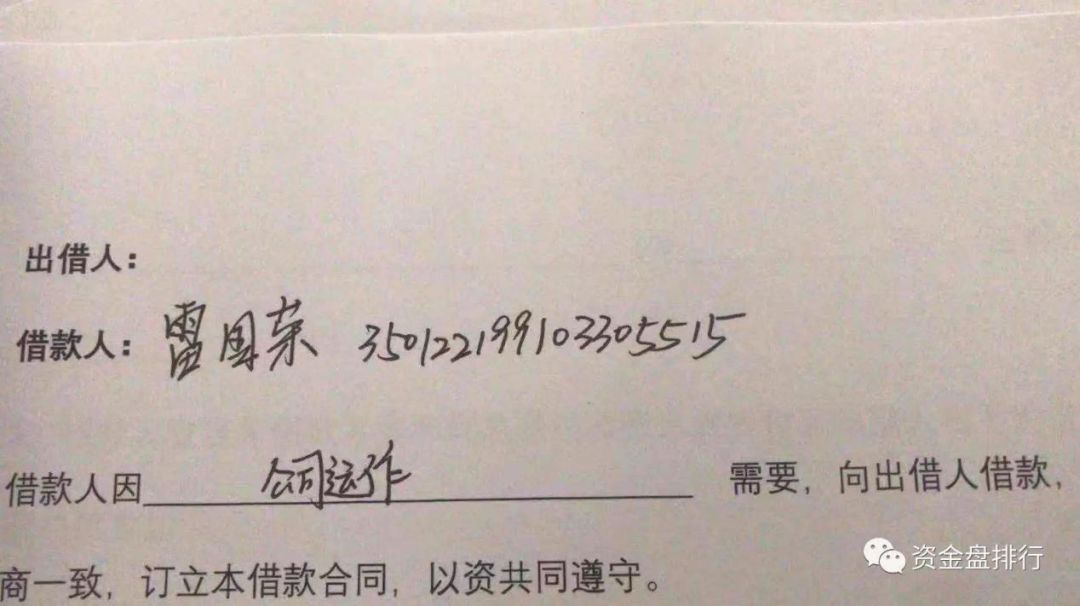 出借人:
借款人: 雷国荣 350122199103305515
借款人因 公司运作 需要，向出借人借款，
商一致，订立本借款合同，以资共同遵守。
资金盘排行